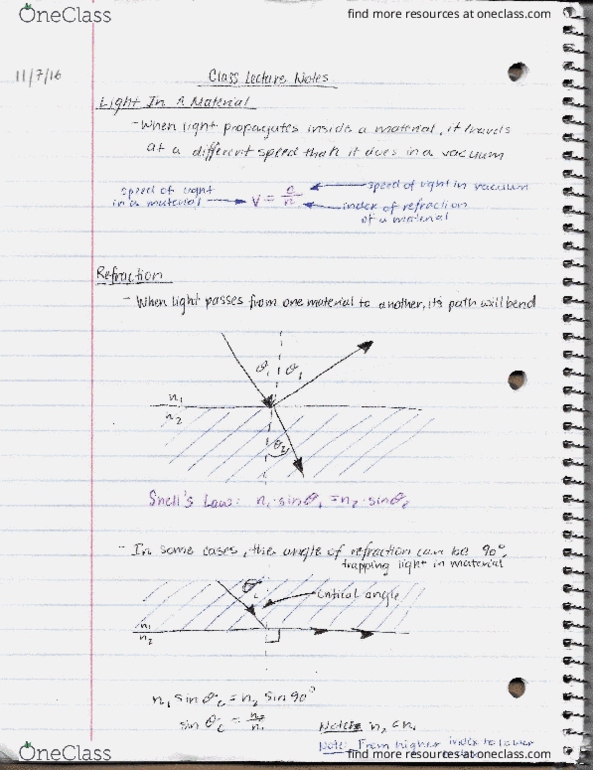 OneClass
find more resources at oneclass.com
11/7/16
Class Lecture Notes
Light In A Material
- When light propagates inside a material, it travels
at a different speed than it does in a vacuum
speed of light
in a material
v = c/n
speed of light in vacuum
index of refraction
of a material
Refraction
- When light passes from one material to another, its path will bend
θ₁ θ₁
n₁
n₂
θ₂
Snell's Law: n₁·sinθ₁ = n₂·sinθ₂
- In some cases, the angle of refraction can be 90°,
trapping light in material
θc
critical angle
n₁
n₂
n₁ sin θc = n₂ sin 90°
sin θc = n₂/n₁
Note: n₂ < n₁
Note: From higher index to lower
OneClass
find more resources at oneclass.com